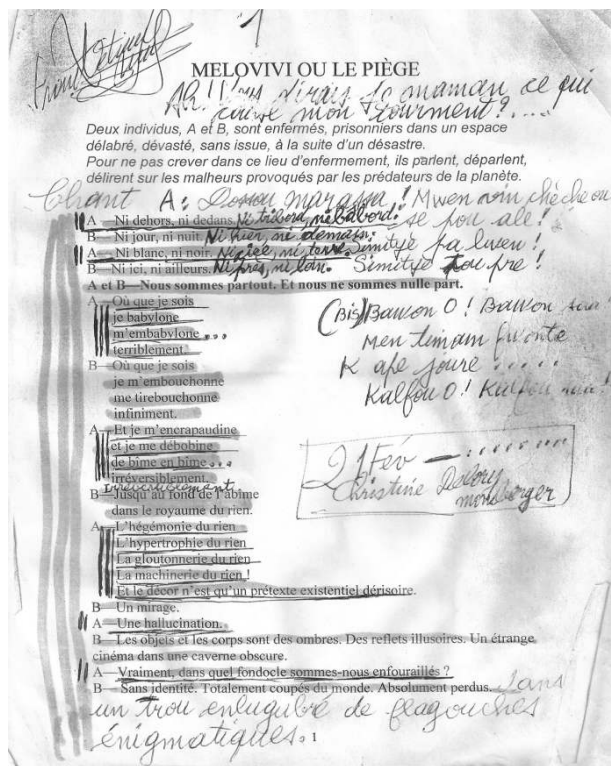 1
MELOVIVI OU LE PIÈGE
Ah! Vous dirais-je maman ce qui
cause mon tourment?...
Deux individus, A et B, sont enfermés, prisonniers dans un espace
délabré, dévasté, sans issue, à la suite d'un désastre.
Pour ne pas crever dans ce lieu d'enfermement, ils parlent, déparlent,
délirent sur les malheurs provoqués par les prédateurs de la planète.
Chant A: Dosou marasa! Mwen vin chèche ou
A – Ni dehors, ni dedans, Ni tribord, ni bâbord. se pou ale!
B – Ni jour, ni nuit. Ni hier, ni demain.
A – Ni blanc, ni noir. Ni ciel, ni terre. Simityè pa lwen!
B – Ni ici, ni ailleurs. Ni près, ni loin. Simityè tou pre!
A et B—Nous sommes partout. Et nous ne sommes nulle part.
A—Où que je sois
je babylone
m'embabylone...
terriblement.
(Bis) Bawon O! Bawon
men
K ape joure.....
Kalfou O! Kalfou
B—Où que je sois
je m'embouchonne
me tirebouchonne
infiniment.
A—Et je m'encrapaudine
et je me débobine
de bîme en bîme...
irréversiblement.
21 Fév
Christine Delory
momberger
B—Jusqu'au fond de l'abîme
dans le royaume du rien.
A—L'hégémonie du rien
L'hypertrophie du rien
La gloutonnerie du rien
La machinerie du rien !
Et le décor n'est qu'un prétexte existentiel dérisoire.
B—Un mirage.
A—Une hallucination.
B—Les objets et les corps sont des ombres. Des reflets illusoires. Un étrange
cinéma dans une caverne obscure.
A—Vraiment, dans quel fondocle sommes-nous enfouraillés ?
B—Sans identité. Totalement coupés du monde. Absolument perdus. Dans
un trou enlugubré de flagouches
énigmatiques. 1